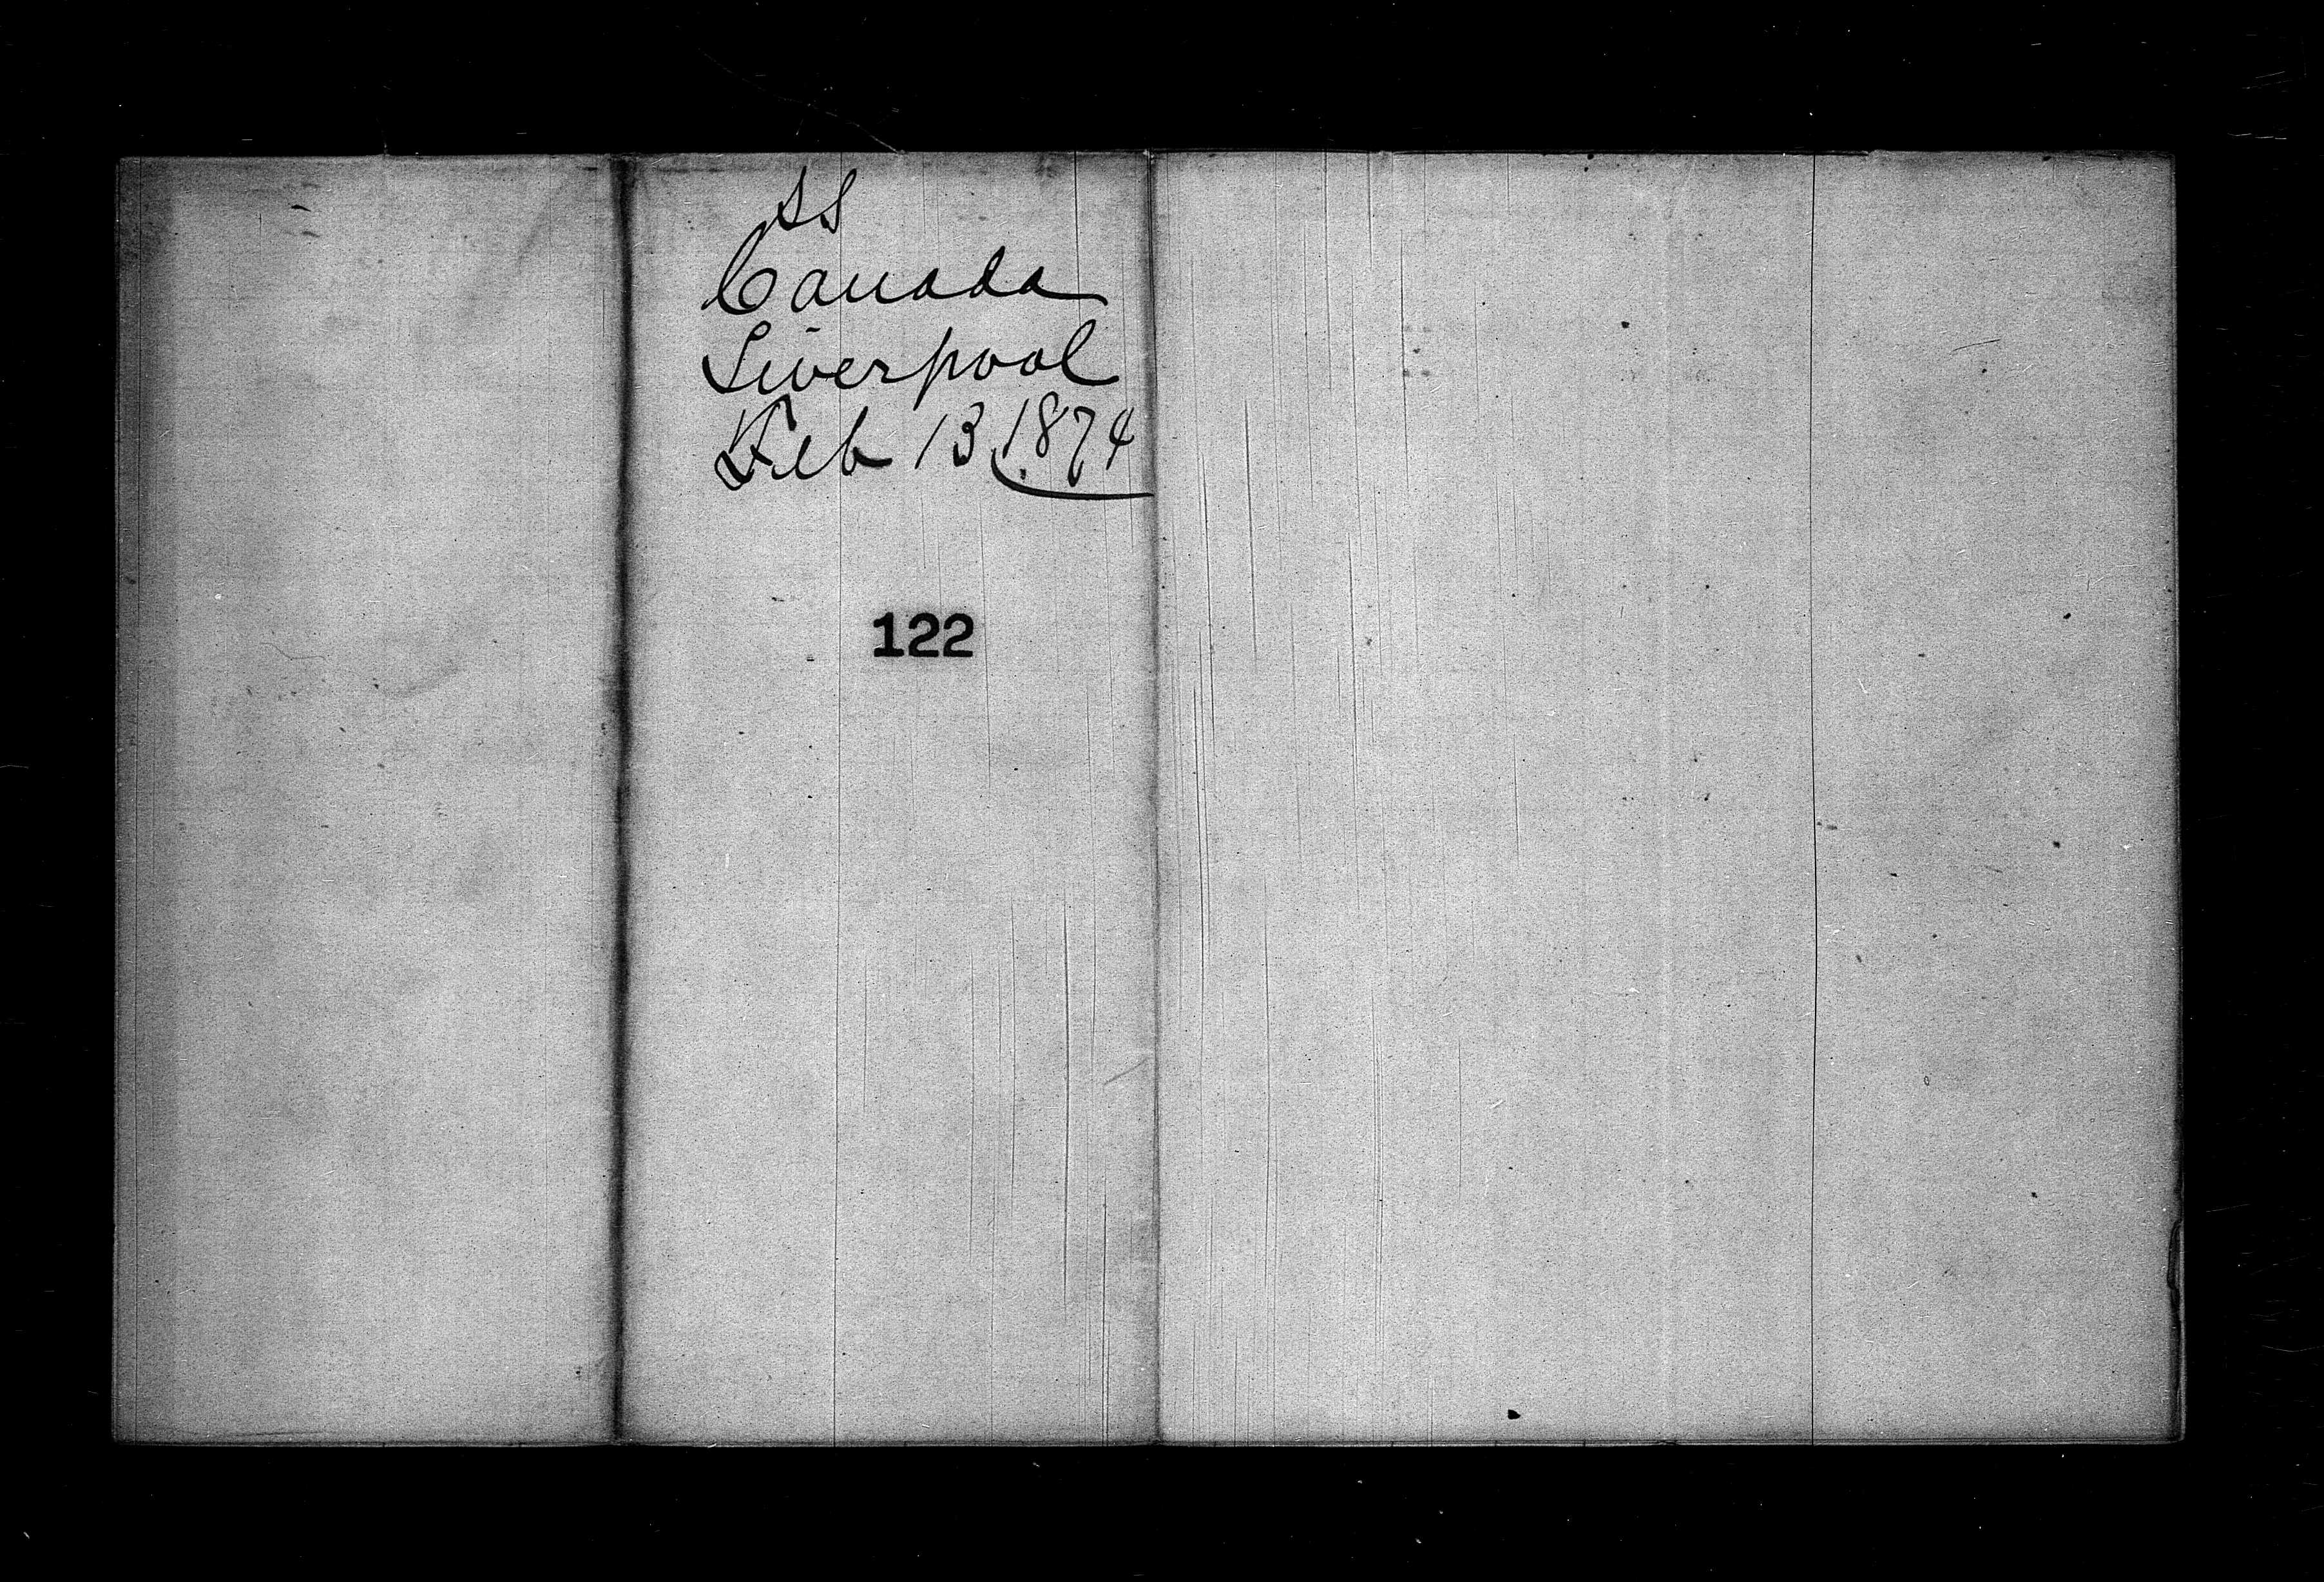 SS
Canada
Liverpool
Feb 13 1874
122